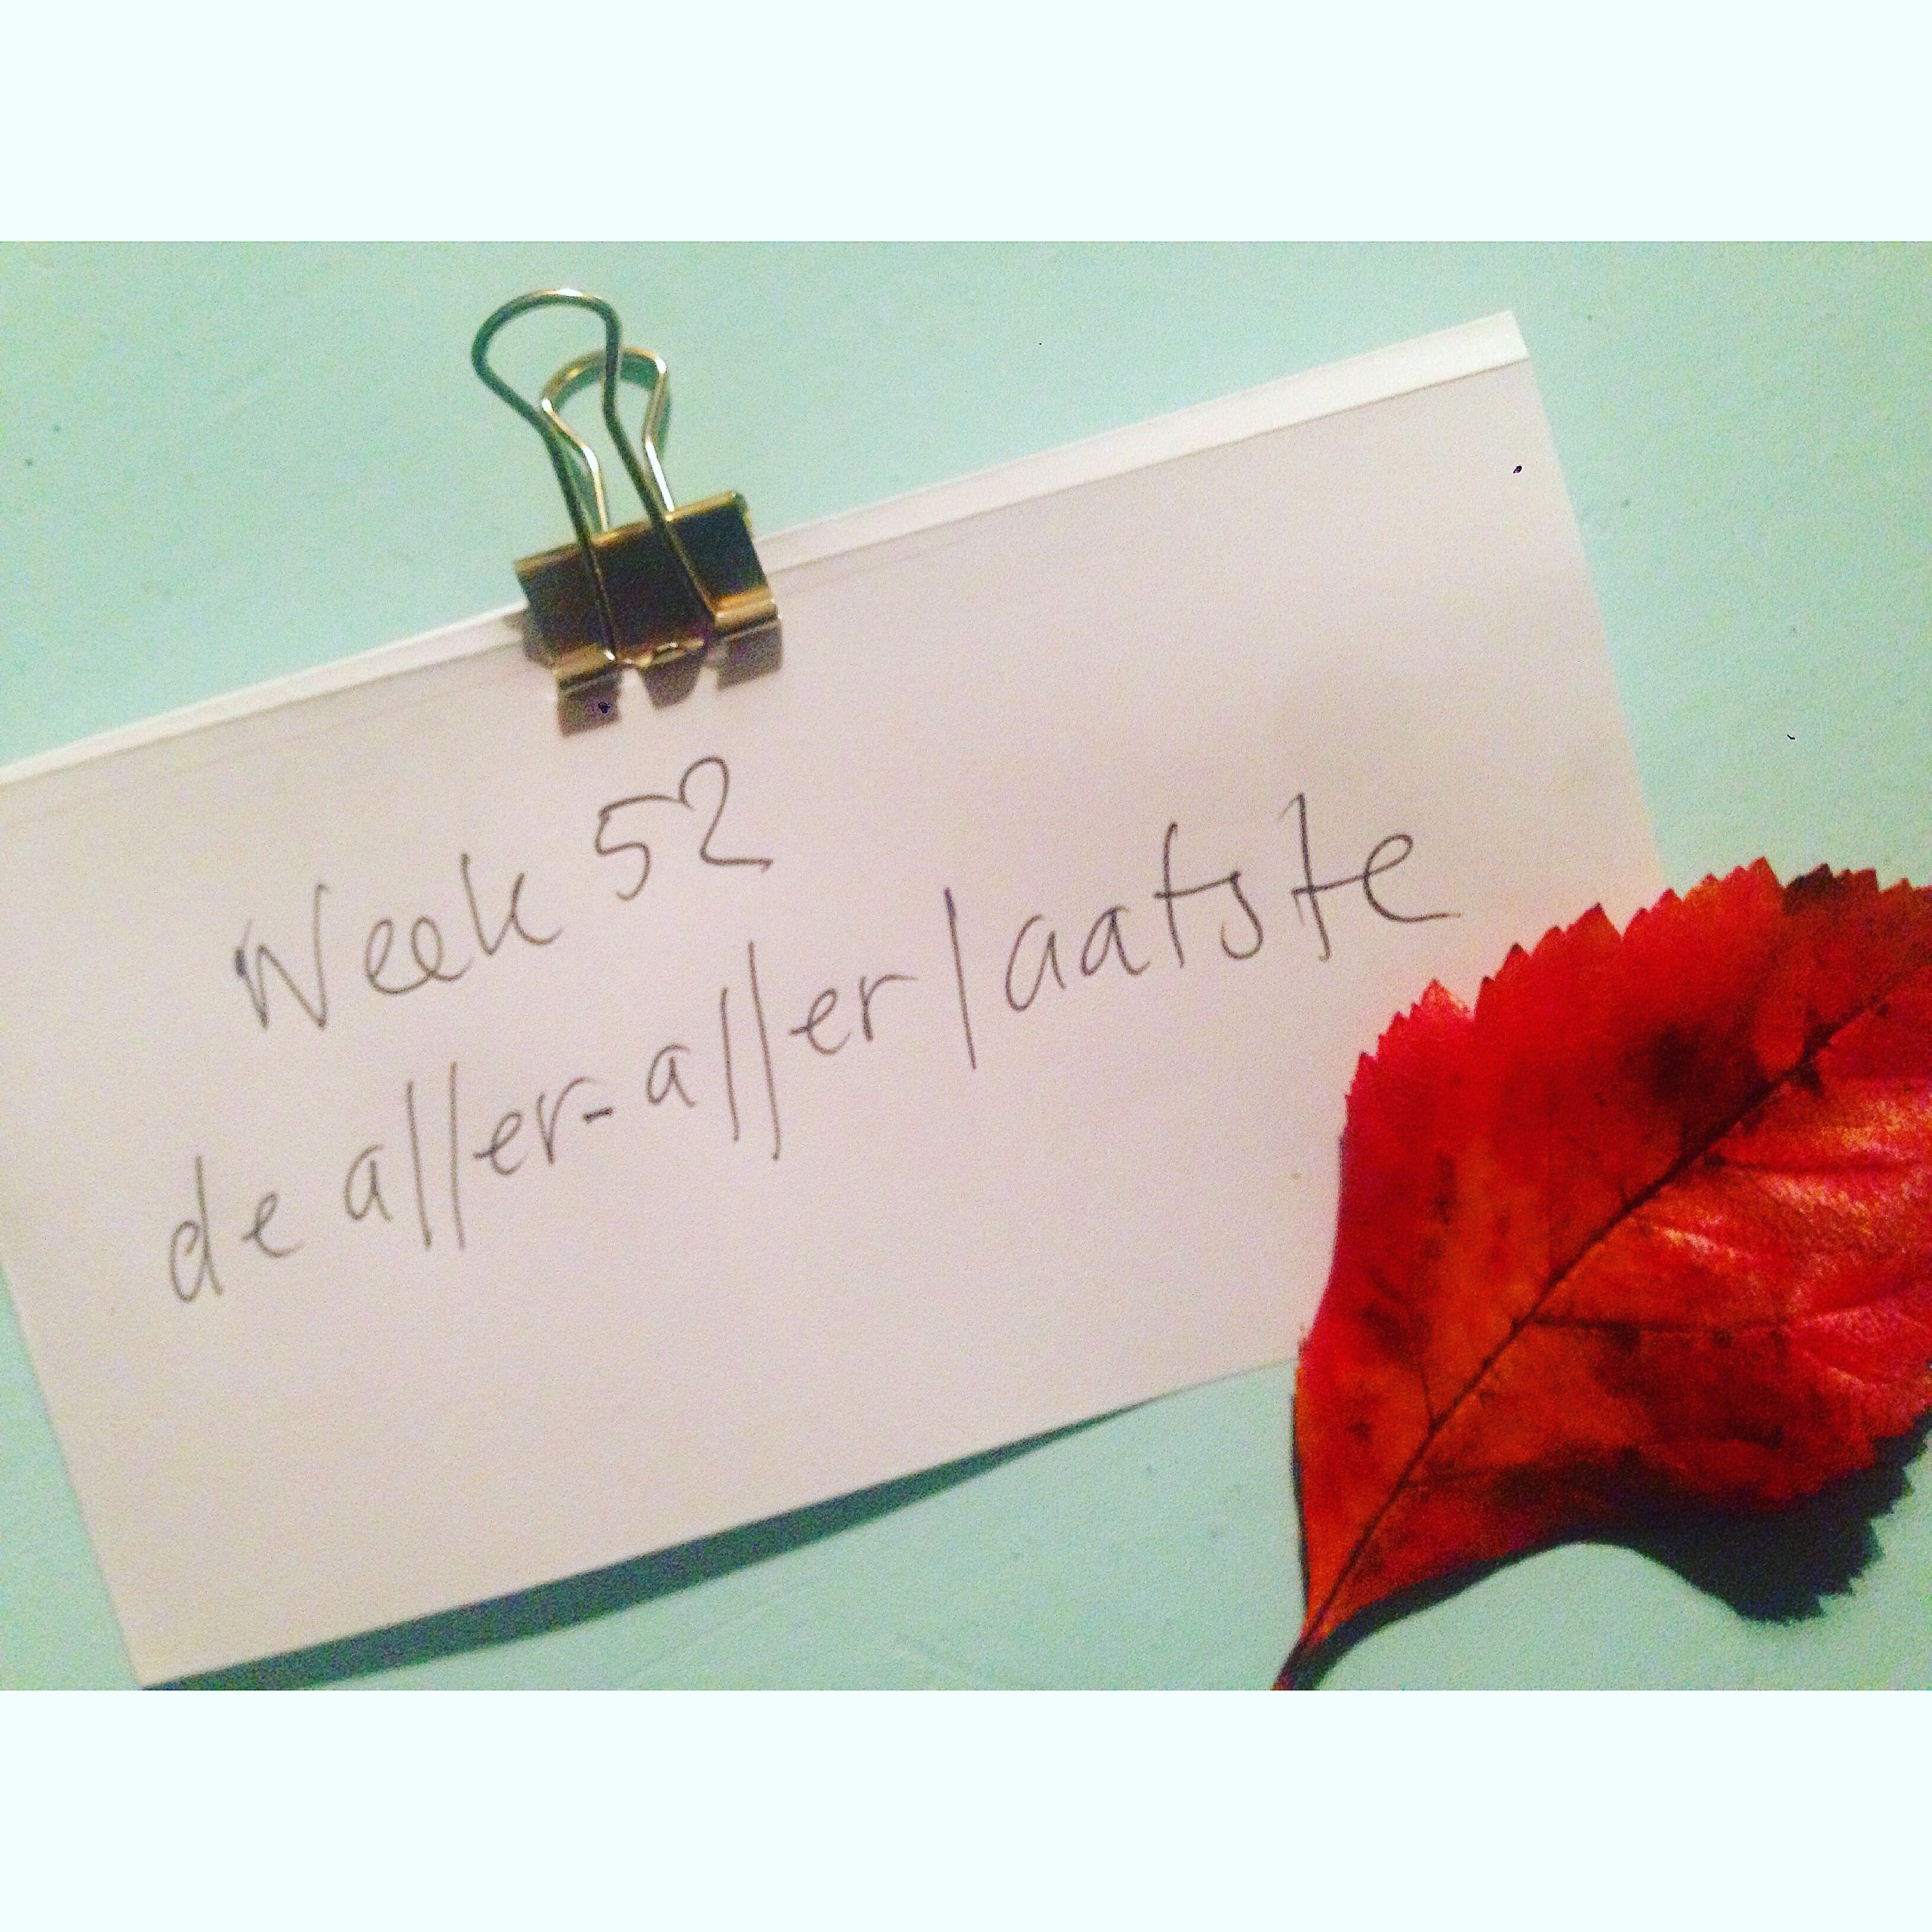 Week 52
de aller-allerlaatste